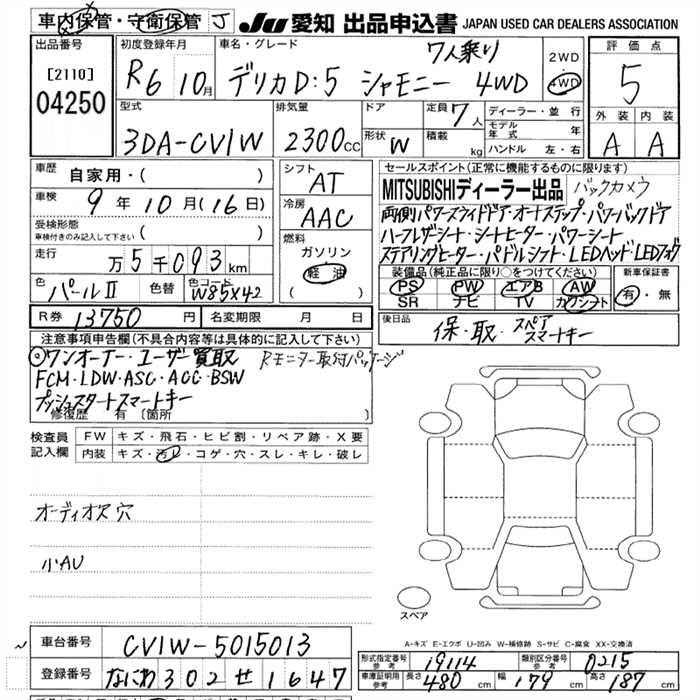 車内保管・守衛保管 J
JU 愛知 出品申込書 JAPAN USED CAR DEALERS ASSOCIATION
出品番号
[2110]
04250
初度登録年月
R6 10月
車名・グレード
7人乗り
デリカD:5 シャモニー 4WD
2WD
4WD
評価点
5
外装 内装
A A
型式
3DA-CV1W
排気量
2300cc
ドア
形状 W
定員 7人
積載 kg
ディーラー・並行
モデル年式 年
ハンドル 左・右
車歴
自家用・( )
車検
9年10月(16日)
受検形態
車検付きのみ記入して下さい ( )
走行
万5千093km
色
パールII
色替
色コード
W85X42
シフト
AT
冷房
AAC
燃料
ガソリン
軽油
( )
セールスポイント(正常に機能するものに限ります)
MITSUBISHIディーラー出品 バックカメラ
両側パワースライドドア・オートステップ・パワーバックドア
ハーフレザーシート・シートヒーター・パワーシート
ステアリングヒーター・パドルシフト・LEDヘッド・LEDフォグ
装備品(純正品に限り○をつけてください)
PS PW エアB AW
SR ナビ TV カワシート
新車保証書
有・無
R券 13750円
名変期限 月 日
後日品
保・取・スペアスマートキー
注意事項申告欄(不具合内容等は具体的に記入して下さい)
◎ワンオーナー・ユーザー買取 Rモニター取付パッケージ
FCM・LDW・ASC・ACC・BSW
プッシュスタートスマートキー
修復歴 有〔箇所
検査員
記入欄
FW キズ・飛石・ヒビ割・リペア跡・X要
内装 キズ・汚レ・コゲ・穴・スレ・キレ・破レ
オーディオス穴
小AU
スペア
A-キズ E-エクボ U-凹み W-補修跡 S-サビ C-腐食 XX-交換済
車台番号 CV1W-5015013
登録番号 なにわ 302 せ 1647
形式指定番号 参考 19114
類別区分番号 参考 0215
車庫証明用 参考 長さ 480cm 幅 179cm 高さ 187cm